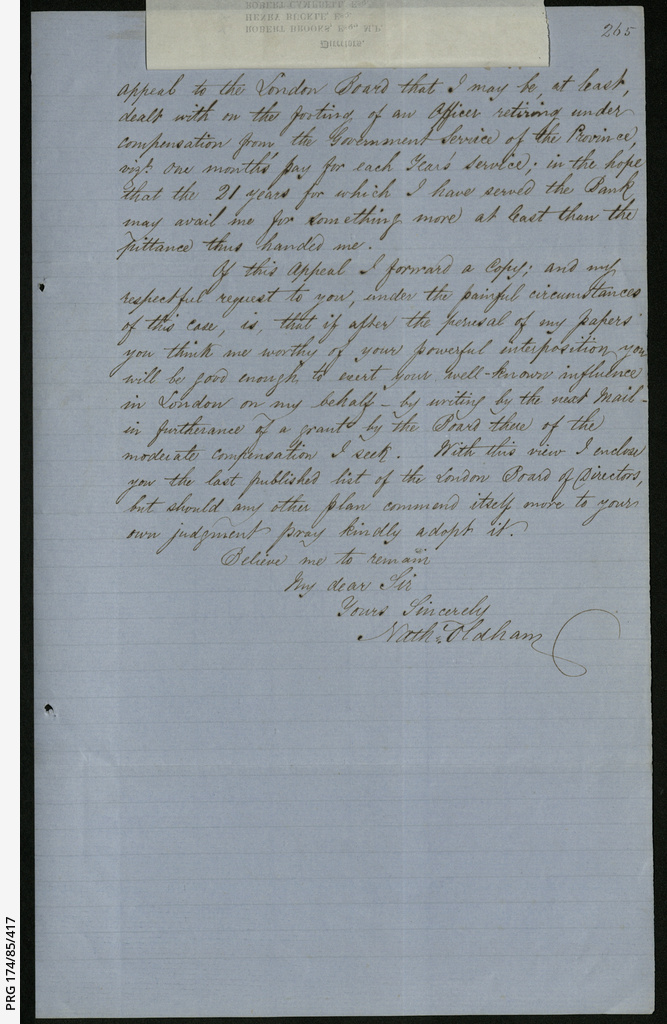 ROBERT CAMPBELL, Esq.
HENRY BUCKLE, Esq.
ROBERT BROOKS, Esq., M.P.
Directors.
265
appeal to the London Board that I may be, at least,
dealt with on the footing of an Officer retiring under
compensation from the Government Service of the Province,
vizt. One month's pay for each Year's service; in the hope
that the 21 years for which I have served the Bank
may avail me for something more at least than the
pittance thus handed me.
Of this Appeal I forward a Copy; and my
respectful request to you, under the painful circumstances
of this case, is, that if after the perusal of my papers
you think me worthy of your powerful interposition you
will be good enough to exert your well-known influence
in London on my behalf - by writing by the next Mail -
in furtherance of a grant by the Board there of the
moderate compensation I seek. With this view I enclose
you the last published list of the London Board of Directors,
but should any other plan commend itself more to your
own judgment pray kindly adopt it.
Believe me to remain
My dear Sir
Yours Sincerely
Nathl. Oldham
PRG 174/85/417